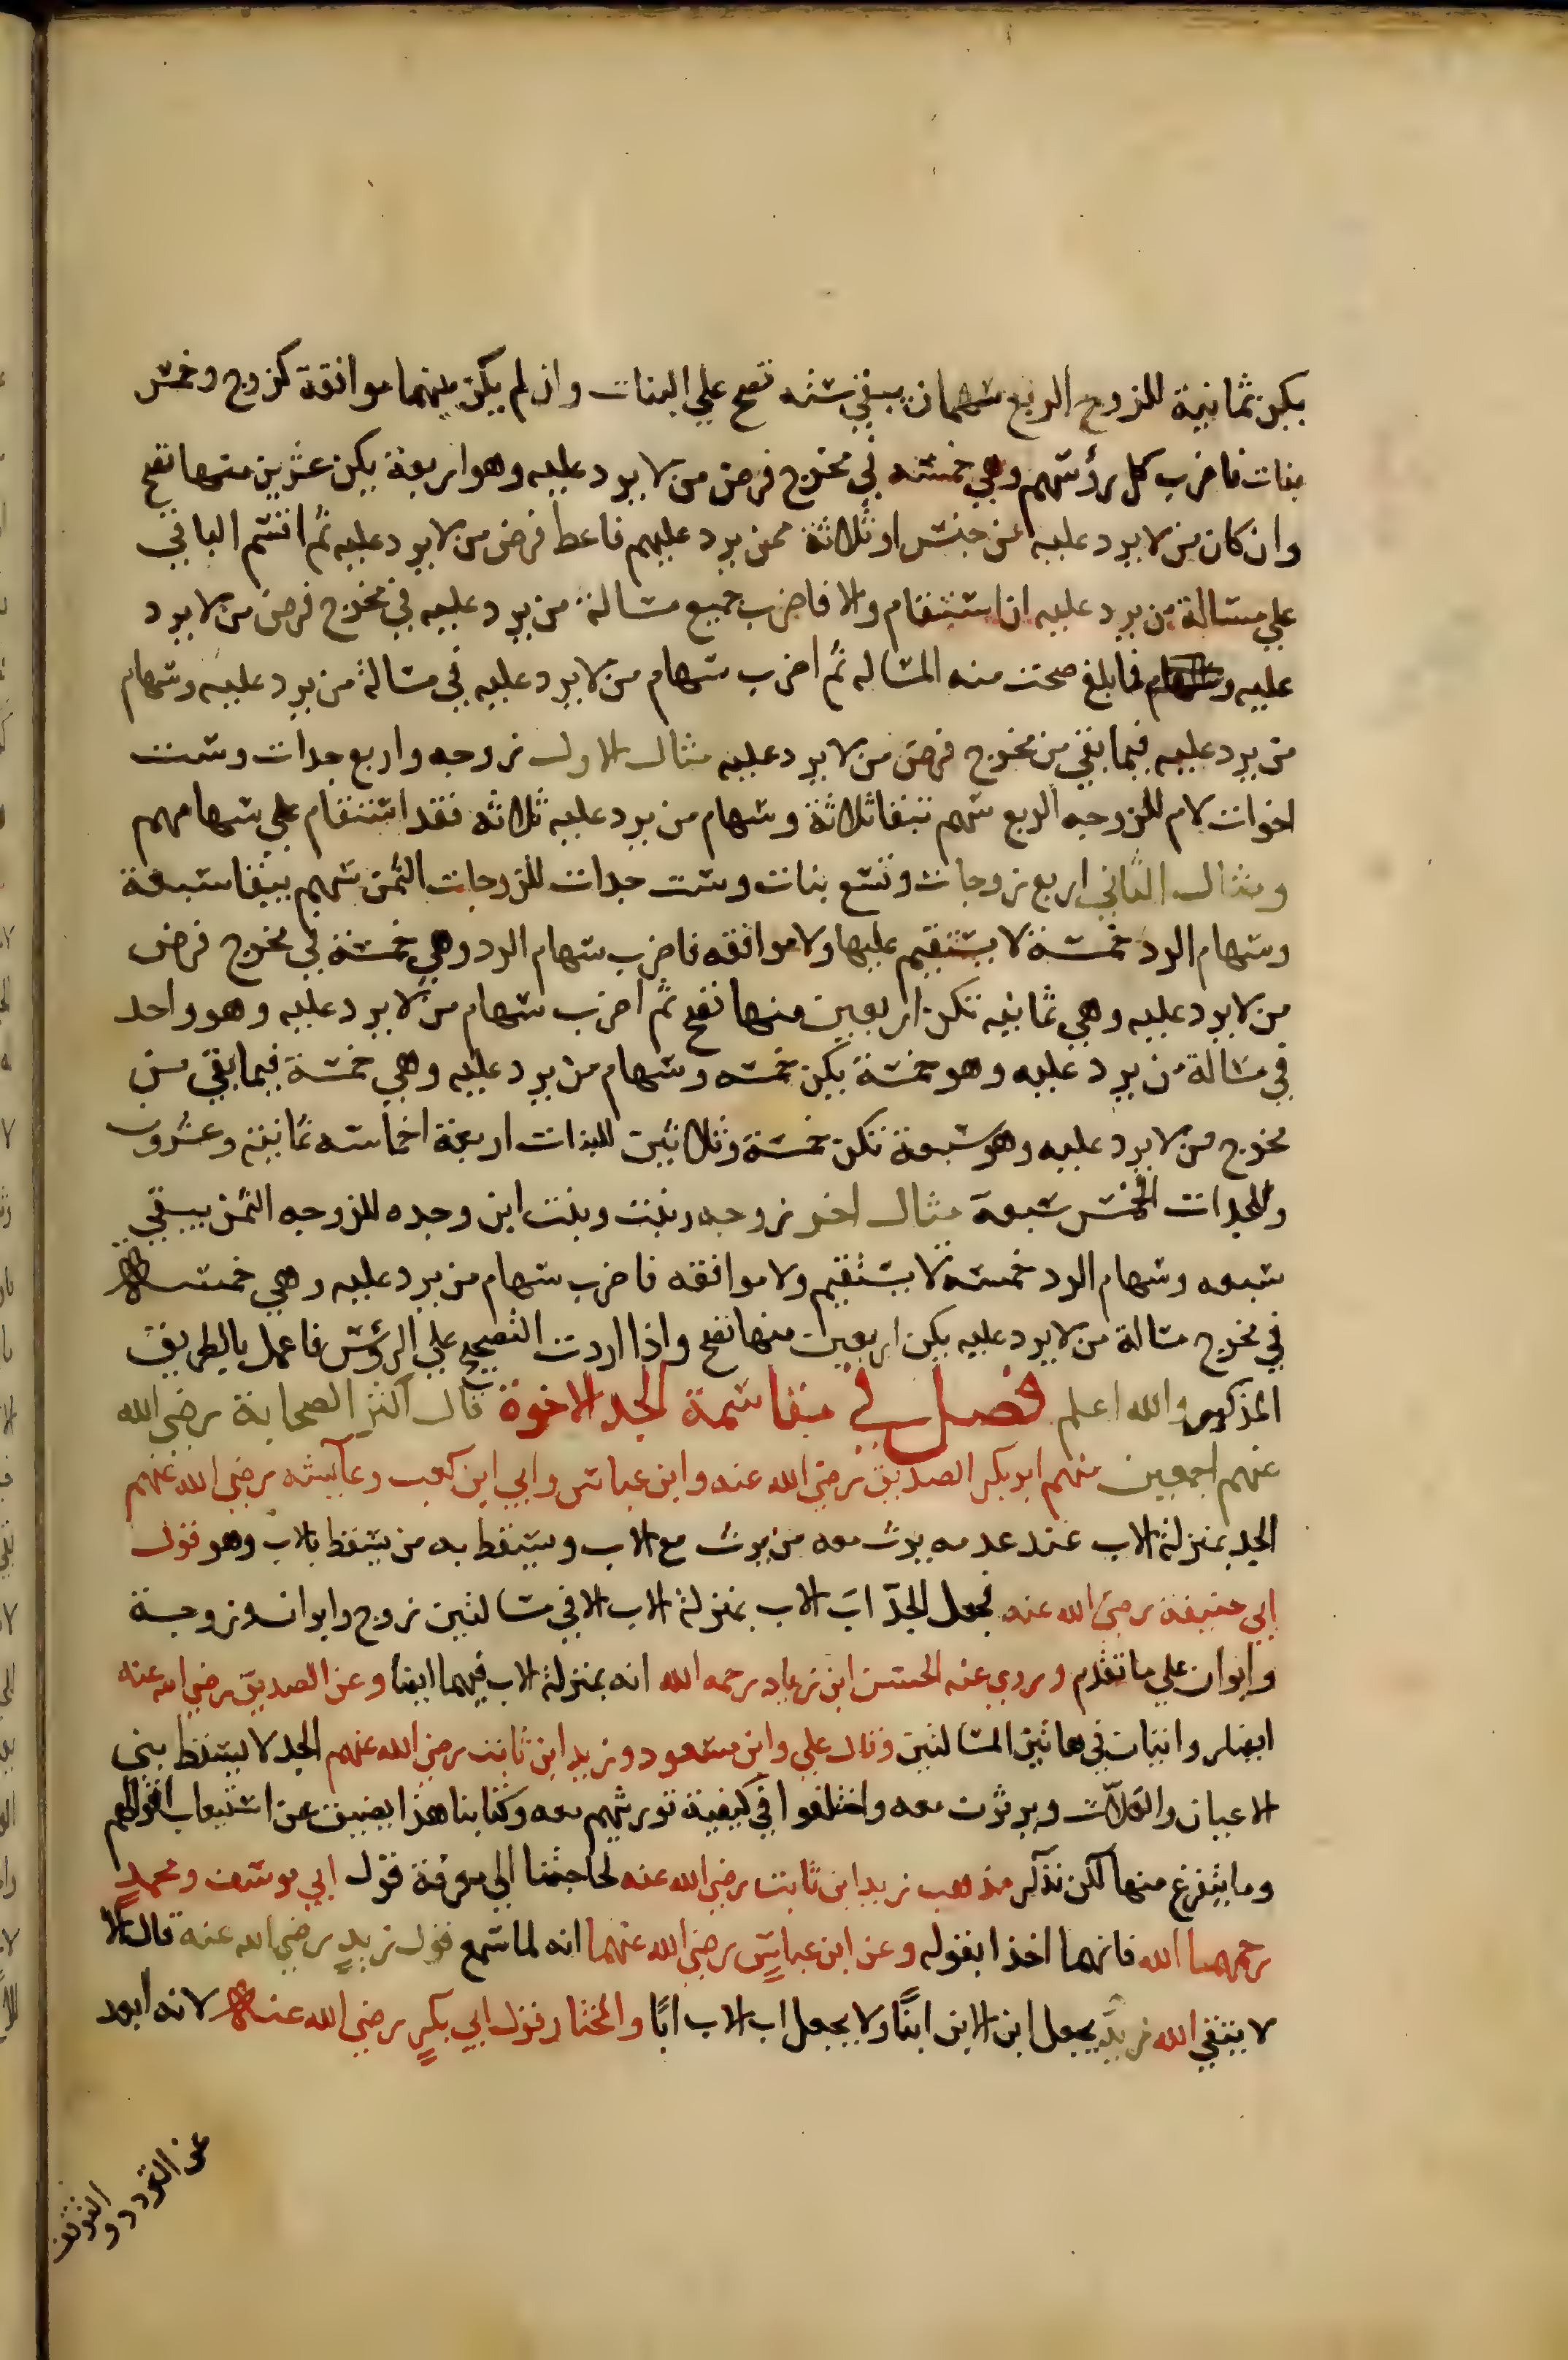 يكن ثمانية للزوج الربع سهمان يبقي سته تصح علي البنات وان لم يكن بينهما موافقة كزوج وخمس
بنات فاضرب كل رؤسهم وهي خمسه في مخرج فرض من لا يرد عليه وهو اربعة يكن عشرين منها تصح
وان كان من لا يرد عليه عن جنس او ثلاثة ممن يرد عليهم فاعط فرض من لا يرد عليه ثم اقسم الباقي
علي مسالة من يرد عليه ان استقام والا فاضرب جميع مسالة من يرد عليه في مخرج فرض من لا يرد
عليه فما بلغ صحت منه المساله ثم اضرب سهام من لا يرد عليه في مسالة من يرد عليه وسهام
من يرد عليه فيما بقي من مخرج فرض من لا يرد عليه مثال الاول زوجه واربع جدات وست
اخوات لام للزوجه الربع سهم تبقا ثلاثة وسهام من يرد عليه ثلاثه فقد استقام علي سهامهم
ومثال الثاني اربع زوجات وتسع بنات وست جدات للزوجات الثمن سهم يبقا سبعة
وسهام الرد خمسة لا يستقيم عليها ولا موافقه فاضرب سهام الرد وهي خمسة في مخرج فرض
من لا يرد عليه وهي ثمانيه تكن اربعين منها تصح ثم اضرب سهام من لا يرد عليه وهو واحد
في مسالة من يرد عليه وهو خمسة يكن خمسه وسهام من يرد عليه وهي خمسة فيما بقي من
مخرج من لا يرد عليه وهو سبعة تكن خمسة وثلاثين للبنات اربعة اخماسه ثمانية وعشرون
وللجدات الخمس سبعة مثال اخر زوجه وبنت وبنت ابن وجده للزوجه الثمن يبقي
سبعه وسهام الرد خمسه لا يستقيم ولا موافقه فاضرب سهام من يرد عليه وهي خمسه
في مخرج مسالة من لا يرد عليه يكن اربعين منها تصح واذا اردت التصحيح علي الرؤس فاعمل بالطريق
المذكور والله اعلم فصل في مقاسمة الجد الاخوة قال اكثر الصحابة رضي الله
عنهم اجمعين منهم ابو بكر الصديق رضي الله عنه وابن عباس وابي ابن كعب وعآيشه رضي الله عنهم
الجد بمنزلة الاب عند عدمه يرث معه من يرث مع الاب ويسقط به من يسقط بالاب وهو قول
ابي حنيفة رضي الله عنه فجعل الجدّ ابَ الاب بمنزلة الاب الا في مسالتين زوج وابوان وزوجة
وابوان علي ما تقدم وروي عنه الحسن ابن زياد رحمه الله انه بمنزلة الاب فيهما ايضا وعن الصديق رضي الله عنه
ايضا روايتان في هاتين المسالتين وقال علي وابن مسعود وزيد ابن ثابت رضي الله عنهم الجد لا يسقط بني
الاعيان والعلاّت ويرثون معه واختلفوا في كيفية توريثهم معه وكتابنا هذا يضيق عن استيعاب اقوالهم
وما يتفرع منها لكن نذكر مذهب زيد ابن ثابت رضي الله عنه لحاجتنا الي معرفة قول ابي يوسف ومحمدٍ
رحمهما الله فانهما اخذا بقوله وعن ابن عباسٍ رضي الله عنهما انه لما سمع قول زيدٍ رضي الله عنه قال الا
لا يتقي الله زيد يجعل ابن الابن ابنًا ولا يجعل اب الاب ابًا والمختار قول ابي بكرٍ رضي الله عنه لانه ابعد
عن التردد والتوقف